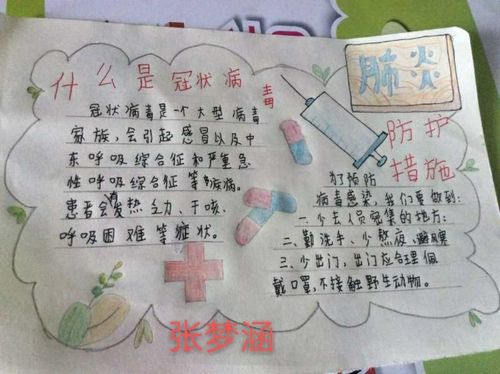 什么是冠状病毒
冠状病毒是一个大型病毒
家族,会引起感冒以及中
东呼吸综合征和严重急
性呼吸综合征等疾病。
患者会发热乏力、干咳、
呼吸困难等症状。
肺炎
防护
措施
为了预防
病毒感染,我们要做到:
一、少去人员密集的地方;
二、勤洗手、少熬夜、
三、少出门,出门应合理佩
戴口罩,不接触野生动物。
张梦涵